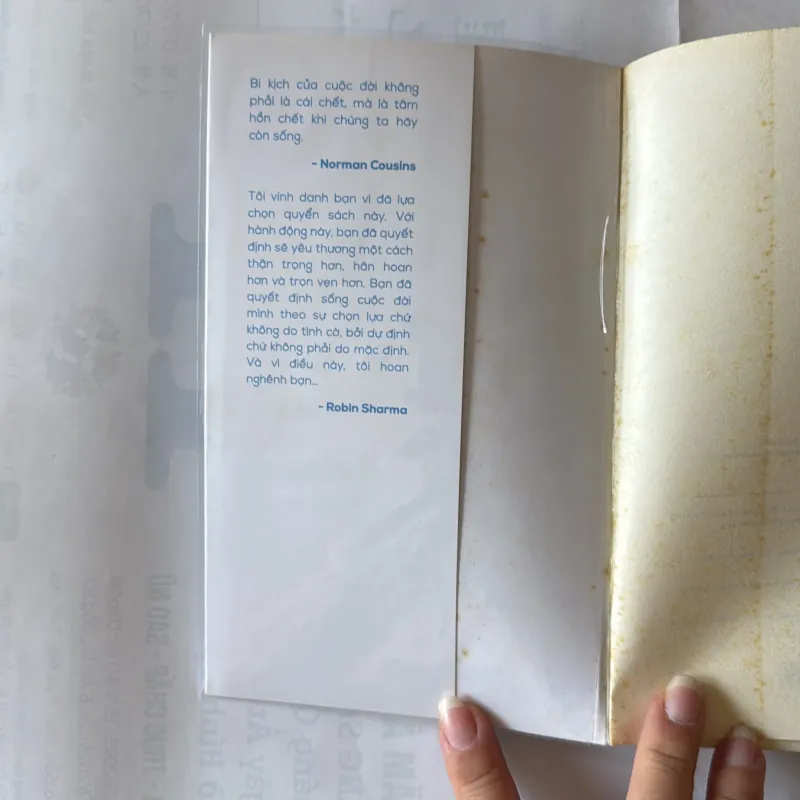 Bi kịch của cuộc đời không
phải là cái chết, mà là tâm
hồn chết khi chúng ta hãy
còn sống.
– Norman Cousins
Tôi vinh danh bạn vì đã lựa
chọn quyển sách này. Với
hành động này, bạn đã quyết
định sẽ yêu thương một cách
thận trọng hơn, hân hoan
hơn và trọn vẹn hơn. Bạn đã
quyết định sống cuộc đời
mình theo sự chọn lựa chứ
không do tình cờ, bởi dự định
chứ không phải do mặc định.
Và vì điều này, tôi hoan
nghênh bạn...
– Robin Sharma